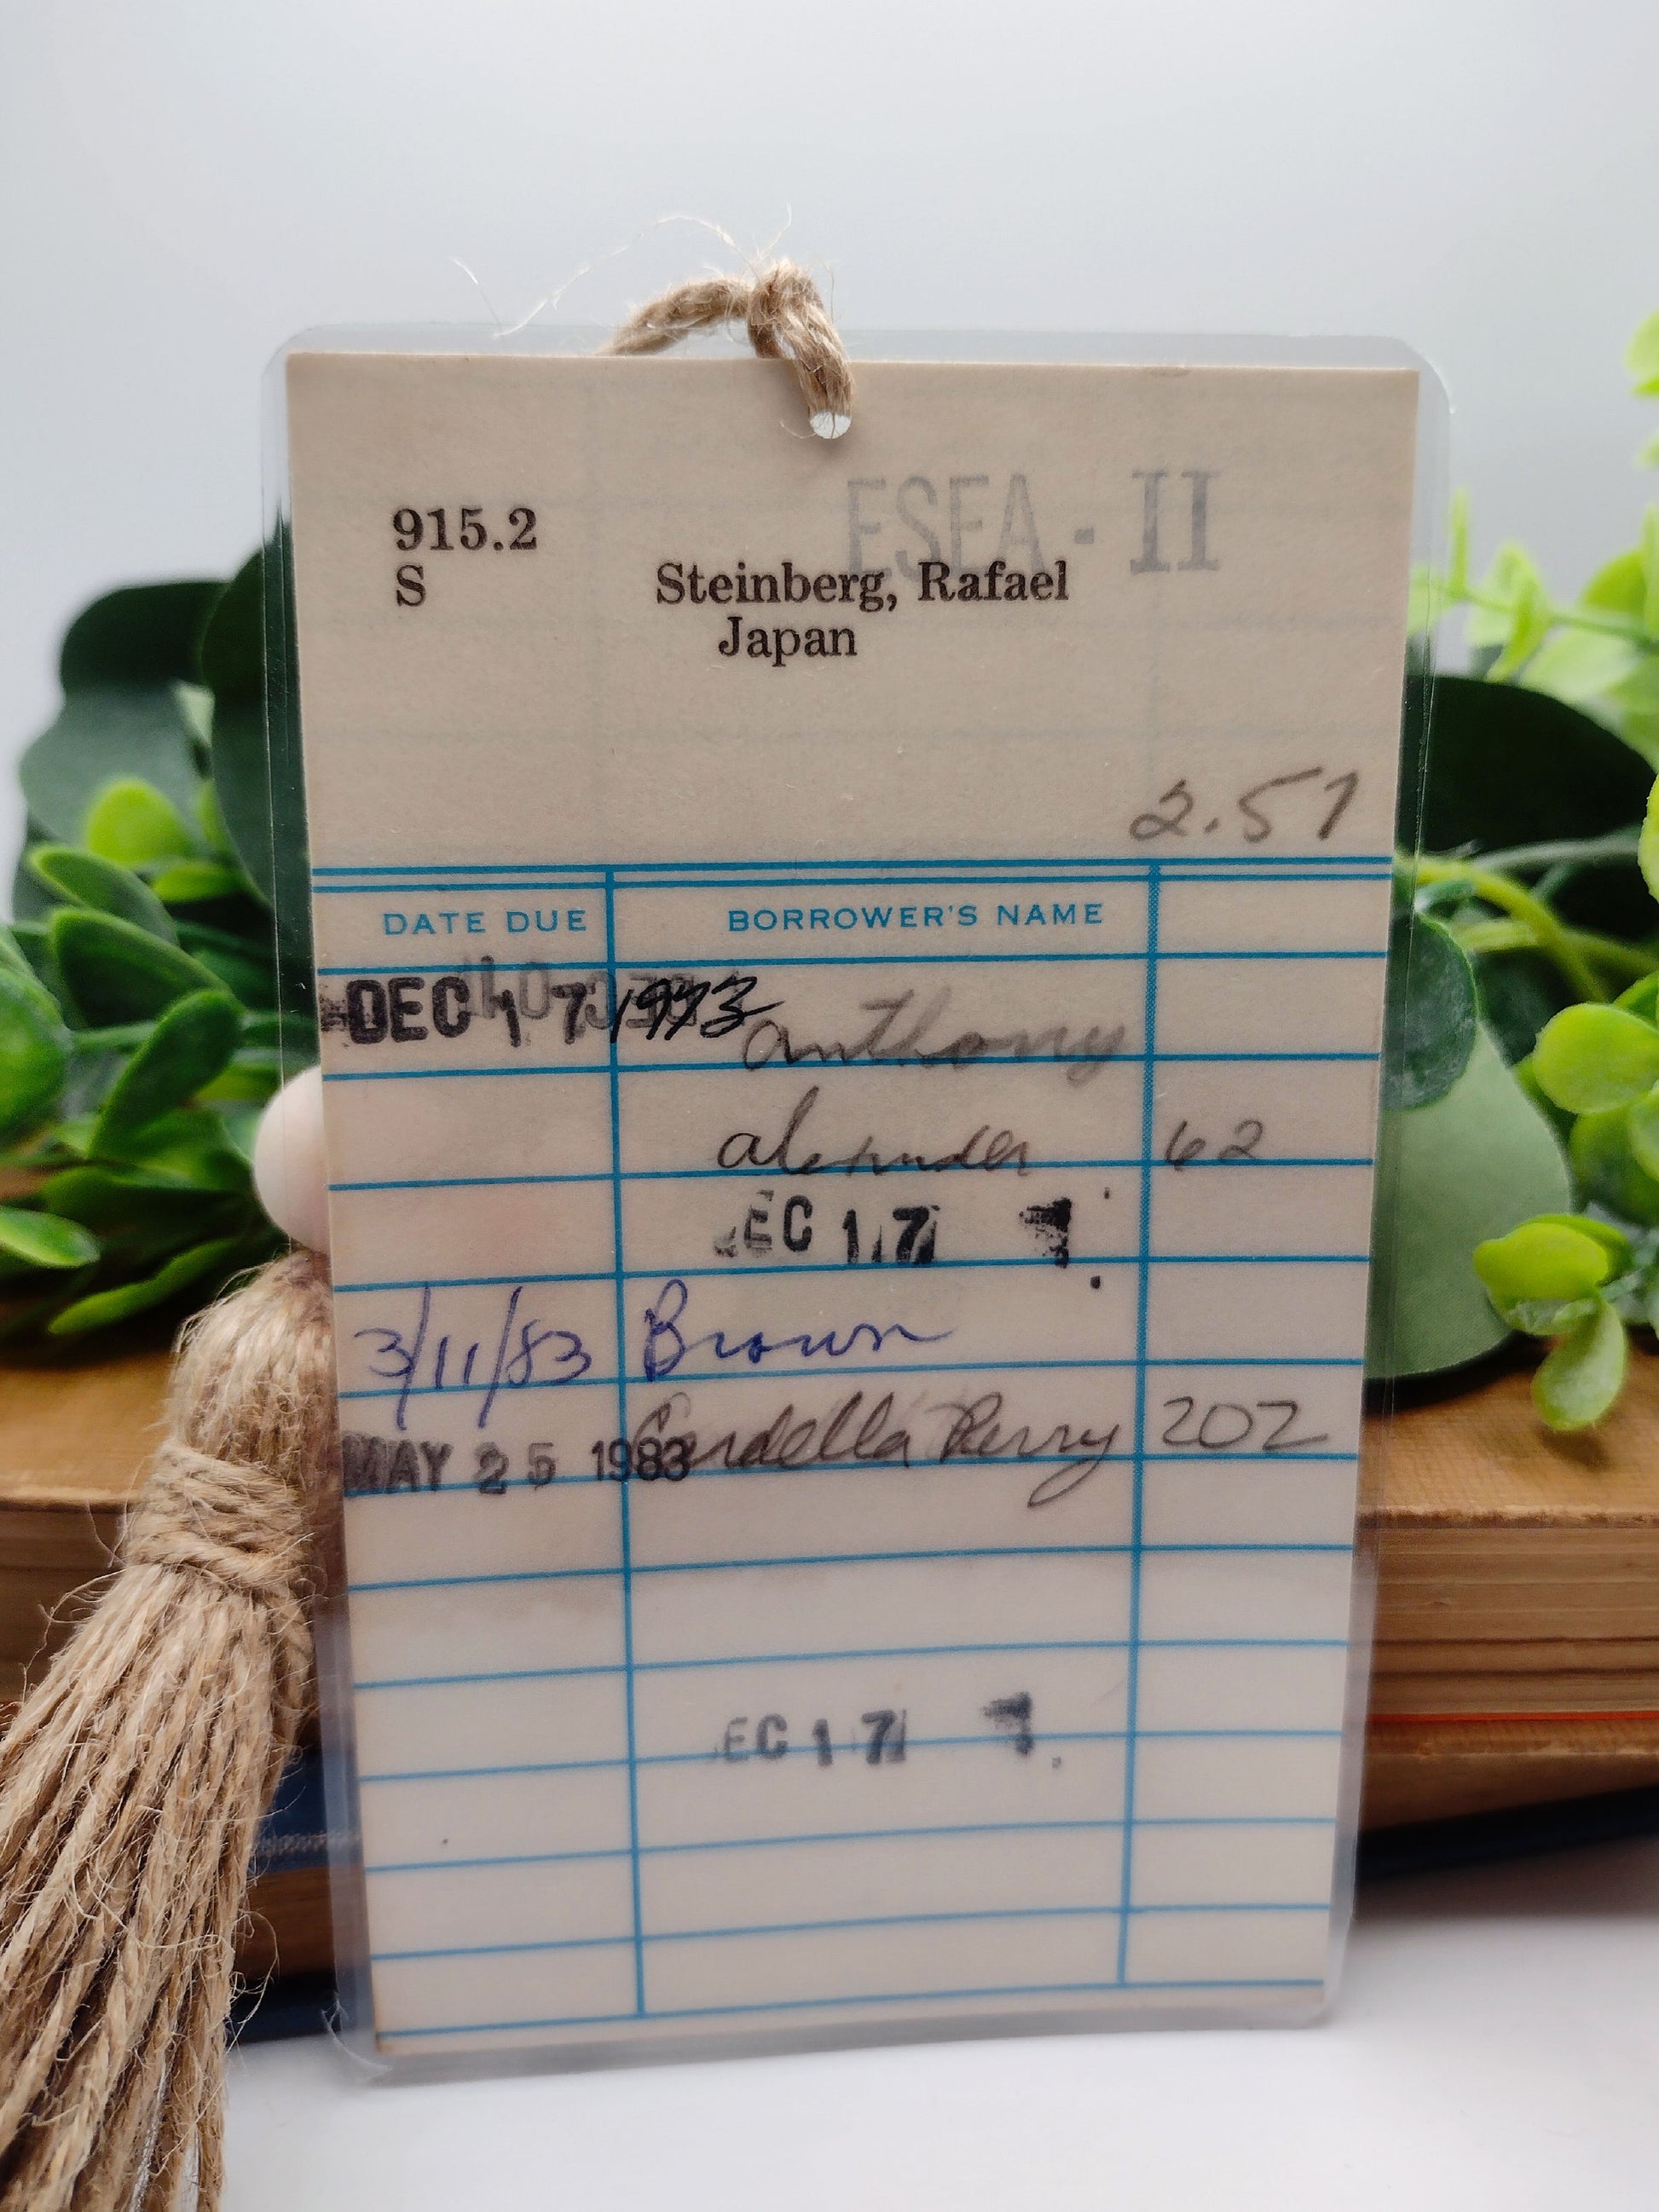 ESEA - II
915.2
S Steinberg, Rafael
Japan
2.57
DATE DUE BORROWER'S NAME
DEC 17 1973 Anthony
Alexander 62
EC 17
3/11/83 Brown
MAY 25 1983 Cordella Perry 202
EC 17